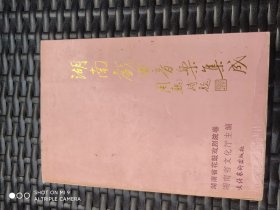 湖南戏曲音乐集成
湖南省花鼓戏剧院卷
湖南省文化厅主编
文化艺术出版社
SHOT ON MI 9
AI TRIPLE CAMERA